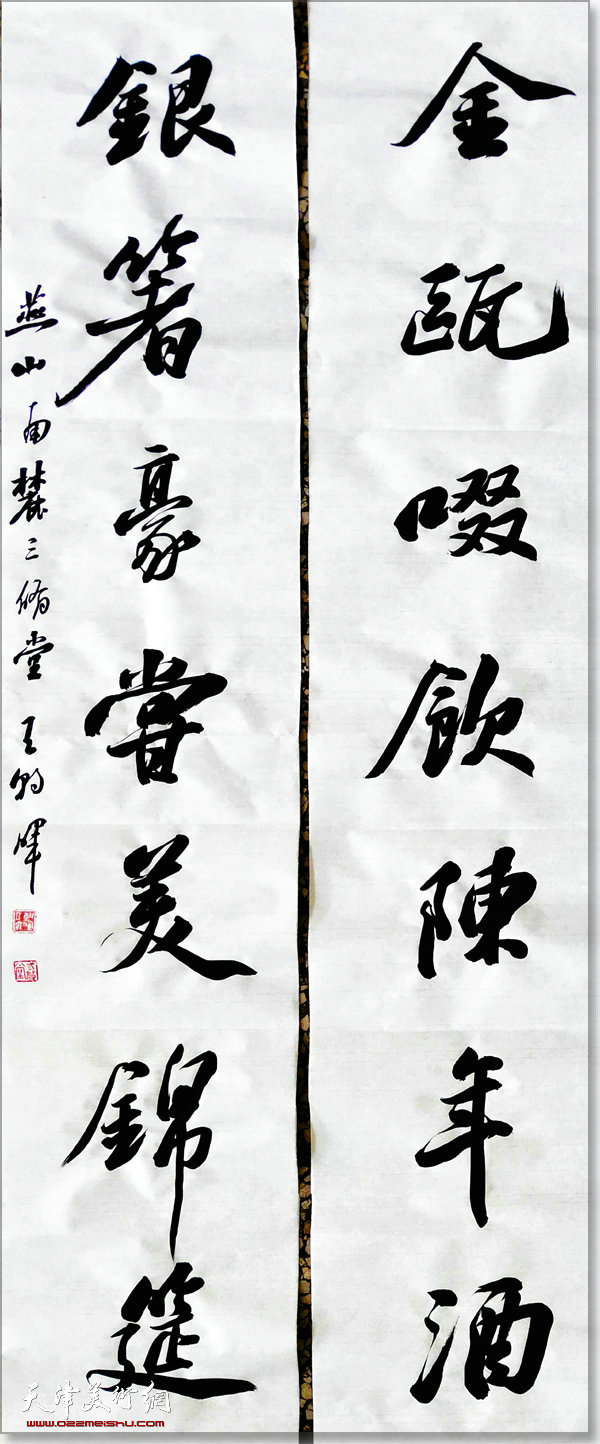 金甌啜飲陳年酒
銀箸豪嘗美錦筵
燕山南麓三脩堂 王明暉
天津美術網
www.022meishu.com